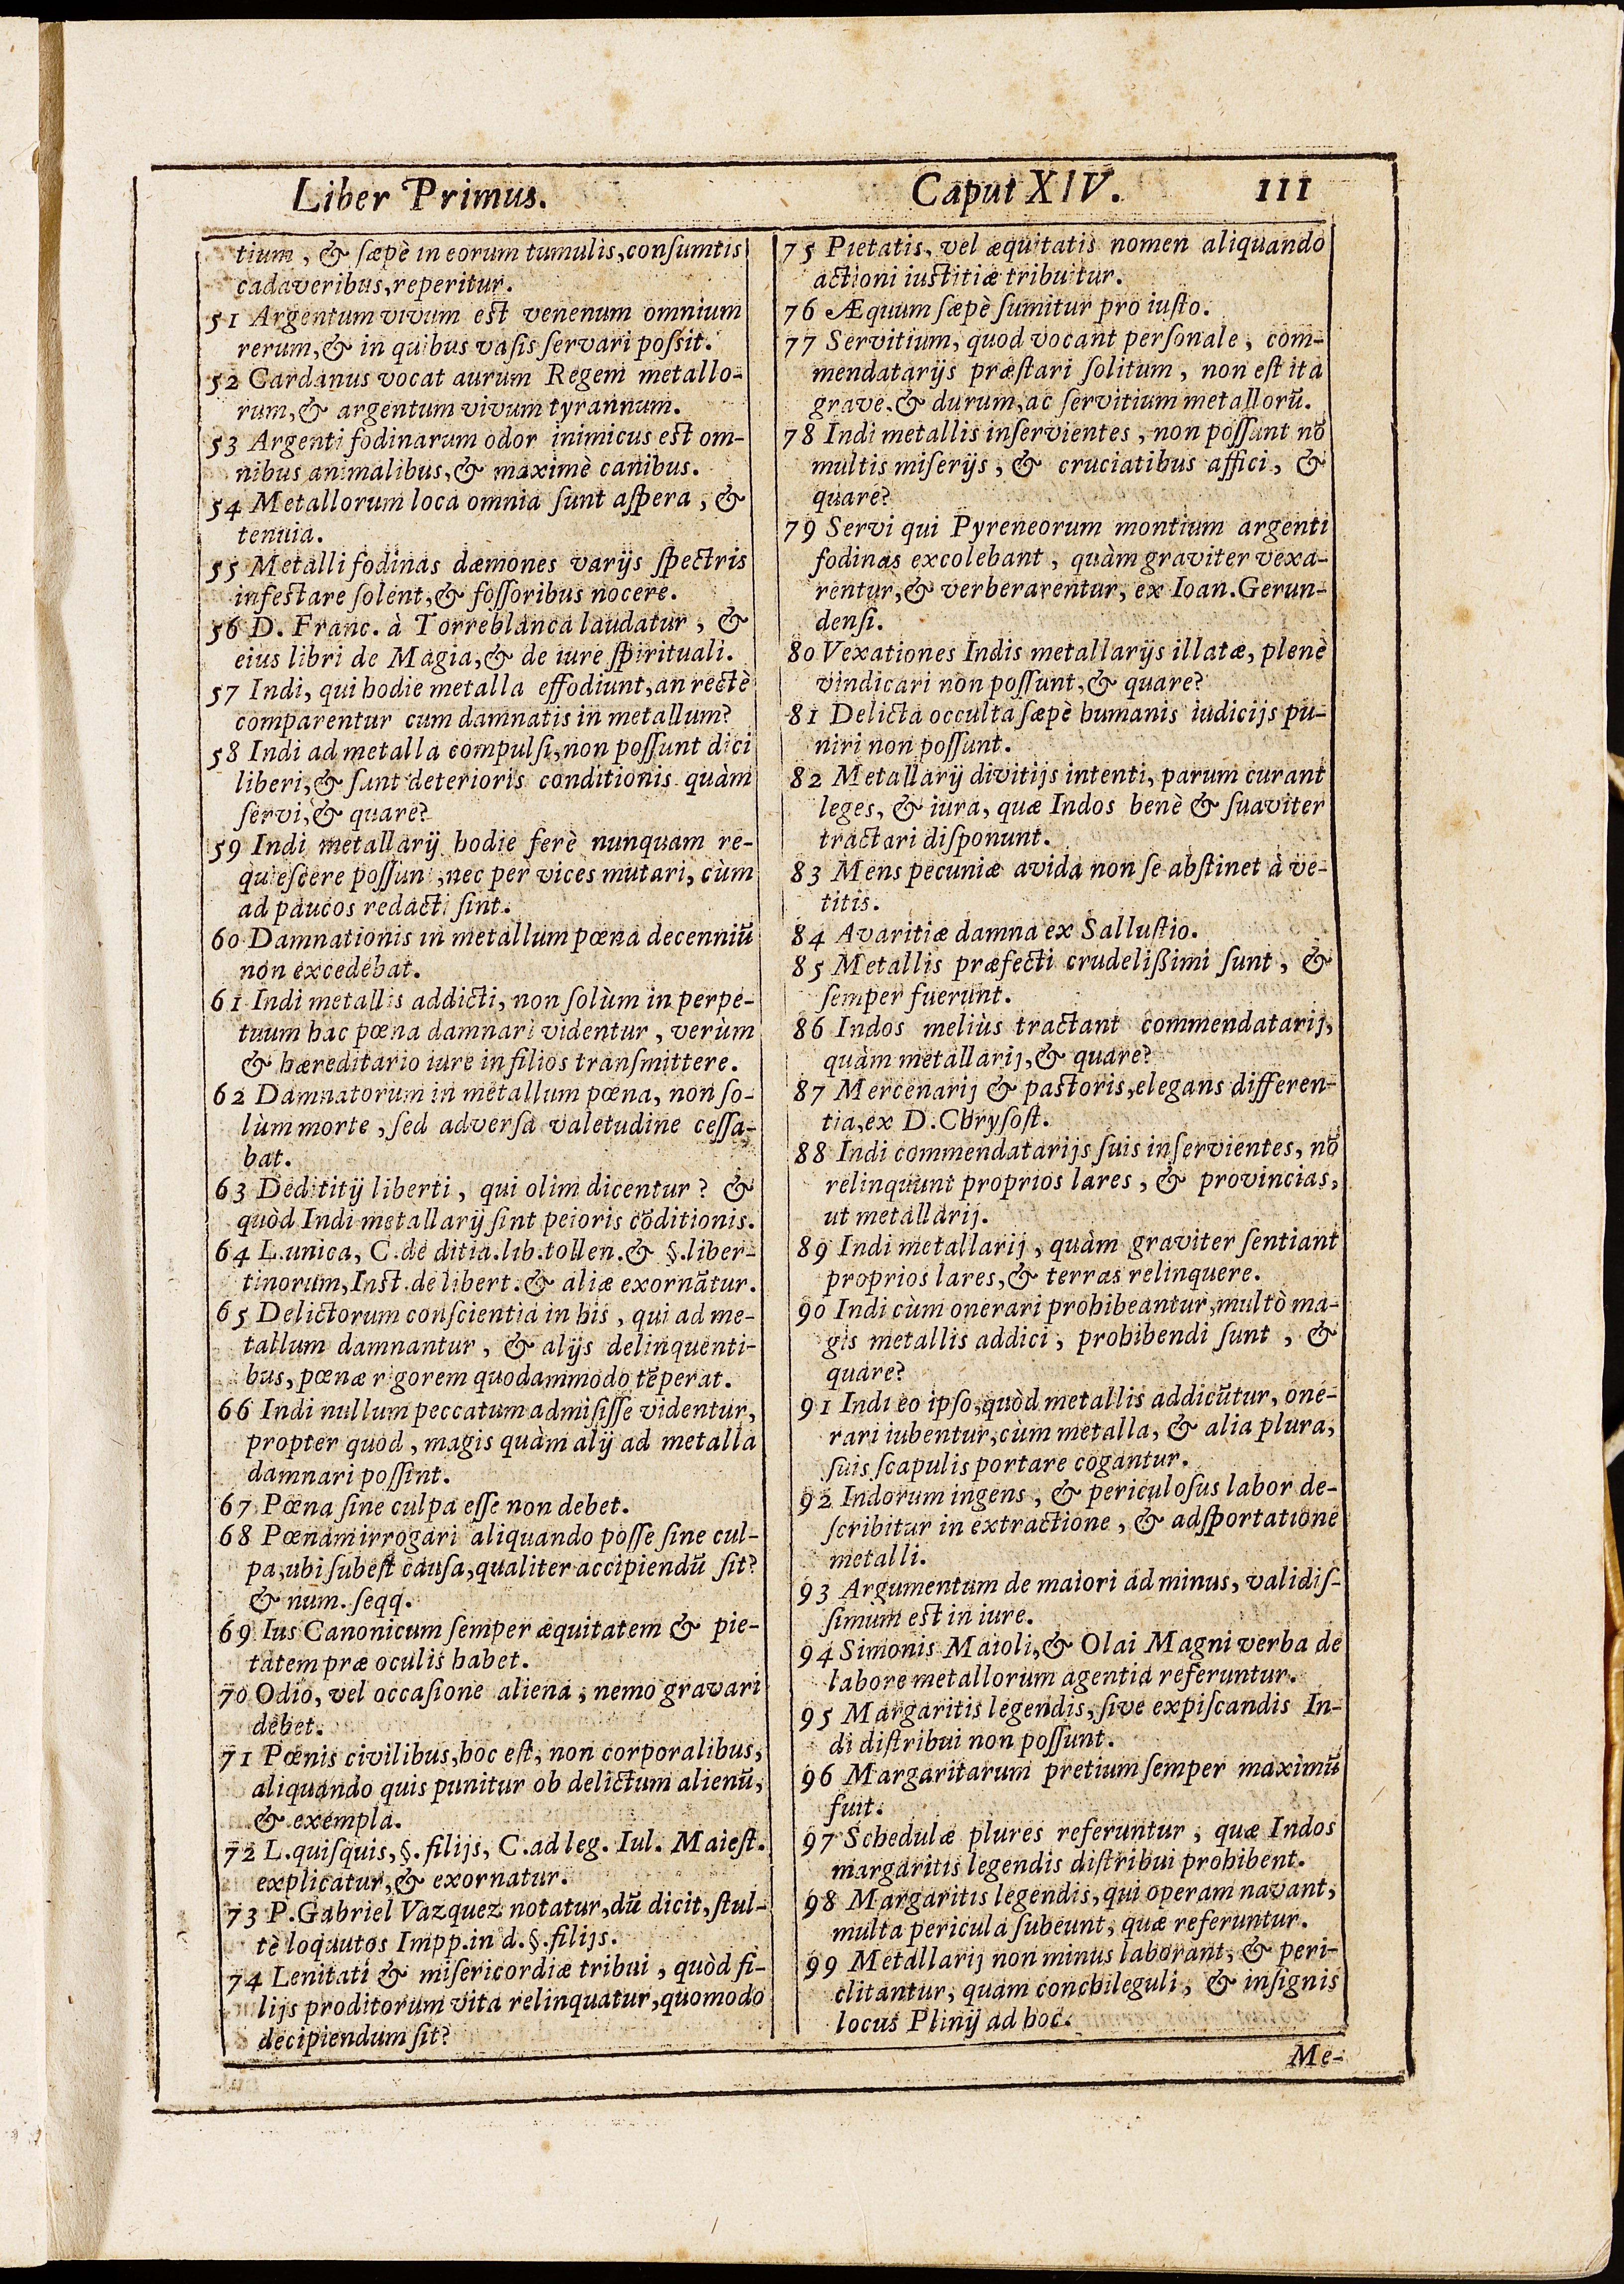 Liber Primus. Caput XIV. 111
tium, & sæpè in eorum tumulis, consumtis
cadaveribus, reperitur.
51 Argentum vivum est venenum omnium
rerum, & in quibus vasis servari possit.
52 Cardanus vocat aurum Regem metallo-
rum, & argentum vivum tyrannum.
53 Argenti fodinarum odor inimicus est om-
nibus animalibus, & maximè canibus.
54 Metallorum loca omnia sunt aspera, &
tenuia.
55 Metalli fodinas dæmones varijs spectris
infestare solent, & fossoribus nocere.
56 D. Franc. à Torreblanca laudatur, &
eius libri de Magia, & de iure spirituali.
57 Indi, qui hodie metalla effodiunt, an rectè
comparentur cum damnatis in metallum?
58 Indi ad metalla compulsi, non possunt dici
liberi, & sunt deterioris conditionis quàm
servi, & quare?
59 Indi metallarij hodie ferè nunquam re-
quiescere possunt, nec per vices mutari, cùm
ad paucos redacti sint.
60 Damnationis in metallum pœna decenniū
non excedebat.
61 Indi metallis addicti, non solùm in perpe-
tuum hac pœna damnari videntur, verùm
& hæreditario iure in filios transmittere.
62 Damnatorum in metallum pœna, non so-
lùm morte, sed adversa valetudine cessa-
bat.
63 Dedititij liberti, qui olim dicentur? &
quòd Indi metallarij sint peioris cōditionis.
64 L. unica, C. de ditia. lib. tollen. & §. liber-
tinorum, Inst. de libert. & aliæ exornātur.
65 Delictorum conscientia in his, qui ad me-
tallum damnantur, & alijs delinquenti-
bus, pœnæ rigorem quodammodo tēperat.
66 Indi nullum peccatum admisisse videntur,
propter quod, magis quàm alij ad metalla
damnari possint.
67 Pœna sine culpa esse non debet.
68 Pœnam irrogari aliquando posse sine cul-
pa, ubi subest causa, qualiter accipiendū sit?
& num. seqq.
69 Ius Canonicum semper æquitatem & pie-
tatem præ oculis habet.
70 Odio, vel occasione aliena, nemo gravari
debet.
71 Pœnis civilibus, hoc est, non corporalibus,
aliquando quis punitur ob delictum alienū,
& exempla.
72 L. quisquis, §. filijs, C. ad leg. Iul. Maiest.
explicatur, & exornatur.
73 P. Gabriel Vazquez notatur, dū dicit, stul-
tè loquutos Impp. in d. §. filijs.
74 Lenitati & misericordiæ tribui, quòd fi-
lijs proditorum vita relinquatur, quomodo
decipiendum sit?
75 Pietatis, vel æquitatis nomen aliquando
actioni iustitiæ tribuitur.
76 Æquum sæpè sumitur pro iusto.
77 Servitium, quod vocant personale, com-
mendatarijs præstari solitum, non est ita
grave, & durum, ac servitium metallorū.
78 Indi metallis inservientes, non possunt nō
multis miserijs, & cruciatibus affici, &
quare?
79 Servi qui Pyreneorum montium argenti
fodinas excolebant, quàm graviter vexa-
rentur, & verberarentur, ex Ioan. Gerun-
densi.
80 Vexationes Indis metallarijs illatæ, plenè
vindicari non possunt, & quare?
81 Delicta occulta sæpè humanis iudicijs pu-
niri non possunt.
82 Metallarij divitijs intenti, parum curant
leges, & iura, quæ Indos benè & suaviter
tractari disponunt.
83 Mens pecuniæ avida non se abstinet à ve-
titis.
84 Avaritiæ damna ex Sallustio.
85 Metallis præfecti crudelissimi sunt, &
semper fuerunt.
86 Indos meliùs tractant commendatarij,
quàm metallarij, & quare?
87 Mercenarij & pastoris, elegans differen-
tia, ex D. Chrysost.
88 Indi commendatarijs suis inservientes, nō
relinquunt proprios lares, & provincias,
ut metallarij.
89 Indi metallarij, quàm graviter sentiant
proprios lares, & terras relinquere.
90 Indi cùm onerari prohibeantur, multò ma-
gis metallis addici, prohibendi sunt, &
quare?
91 Indi eo ipso, quòd metallis addicūtur, one-
rari iubentur, cùm metalla, & alia plura,
suis scapulis portare cogantur.
92 Indorum ingens, & periculosus labor de-
scribitur in extractione, & adsportatione
metalli.
93 Argumentum de maiori ad minus, validis-
simum est in iure.
94 Simonis Maioli, & Olai Magni verba de
labore metallorum agentia referuntur.
95 Margaritis legendis, sive expiscandis In-
di distribui non possunt.
96 Margaritarum pretium semper maximū
fuit.
97 Schedulæ plures referuntur, quæ Indos
margaritis legendis distribui prohibent.
98 Margaritis legendis, qui operam navant,
multa pericula subeunt, quæ referuntur.
99 Metallarij non minus laborant, & peri-
clitantur, quam conchileguli, & insignis
locus Plinij ad hoc.
Me-